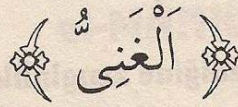 اَلْغَنِىُّ